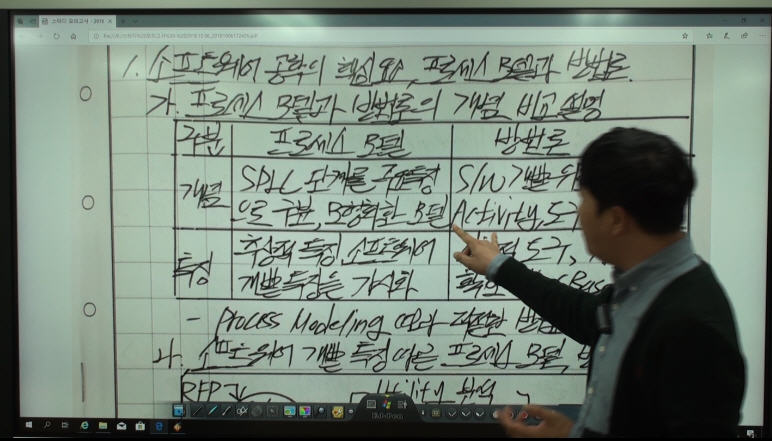 1. 소프트웨어 공학의 핵심요소, 프로세스 모델과 방법론
가. 프로세스 모델과 방법론의 개념 비교 설명
구분 프로세스 모델 방법론
개념 SDLC 단계를 주요특징 S/W 개발
으로 구분, 모형화한 모델 Activity, 도구
특징 추상적 특징, 소프트웨어 도구,
개발특징을 가시화
- Process Modeling 따라 적절한
나. 소프트웨어 개발 특징 따른 프로세스 모델,
RFP Utility 분석